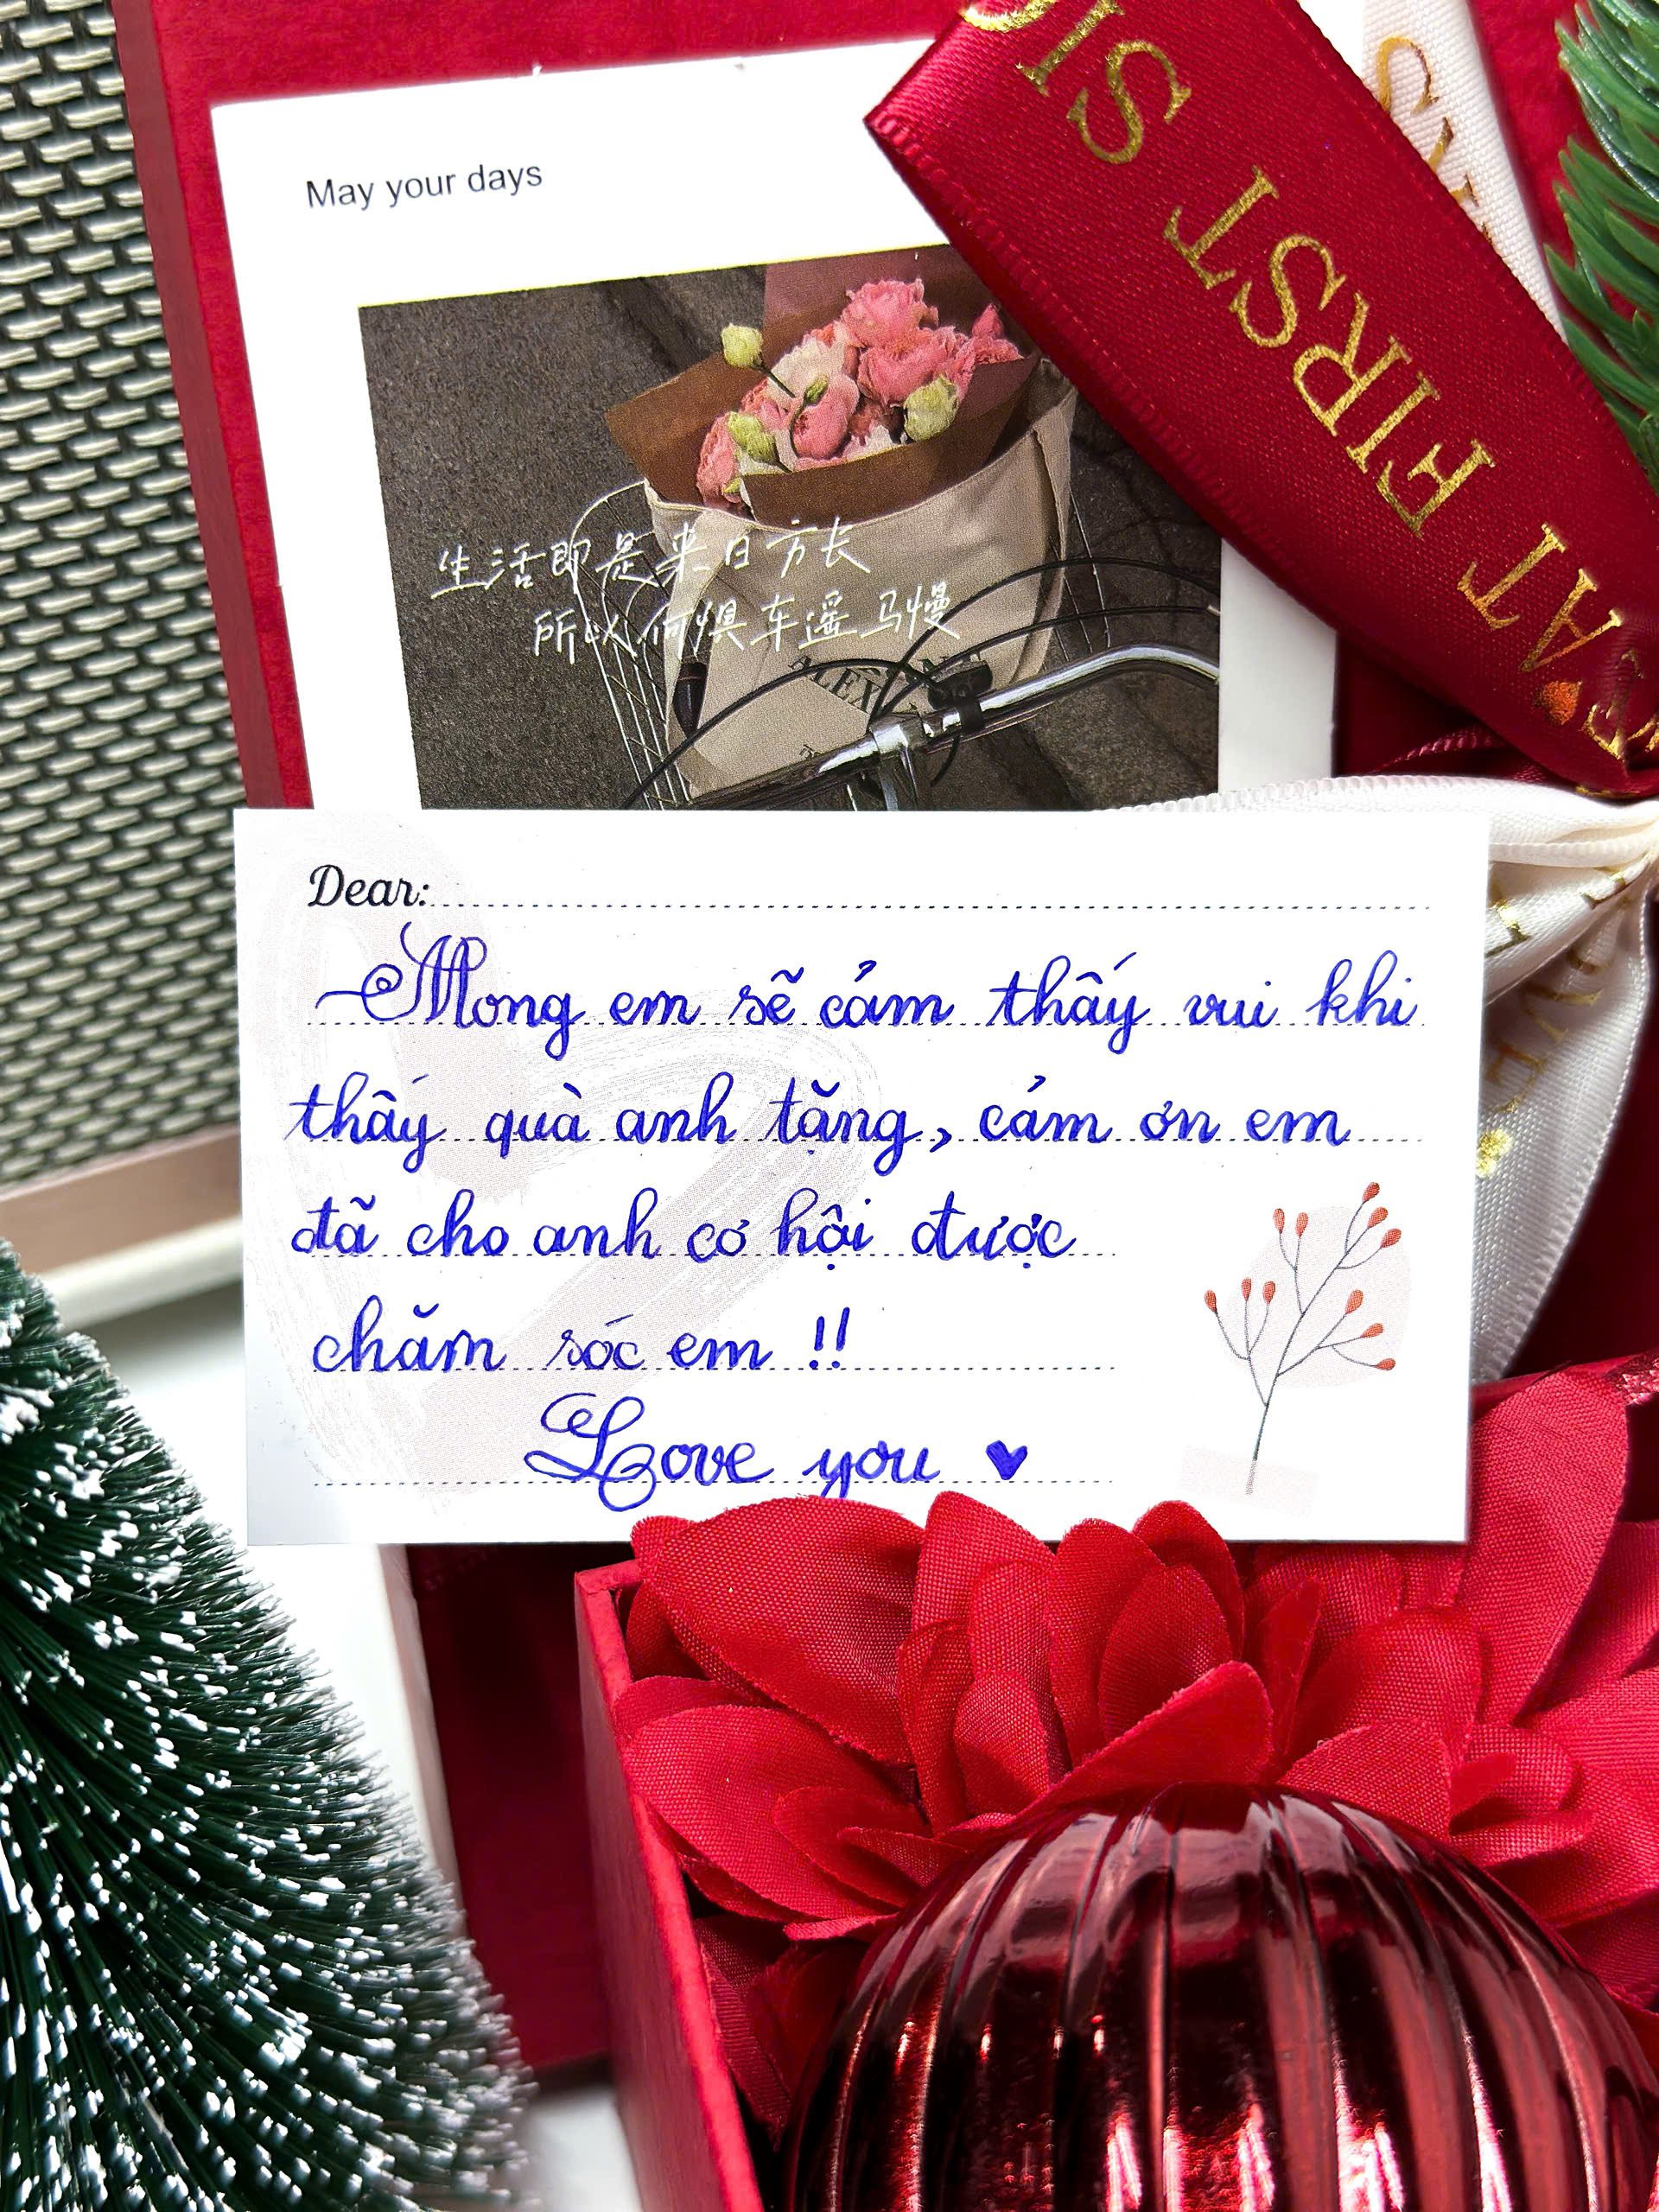 May your days
SIG
T FIRST
AT
生活即是来日方长
所以何惧车遥马慢
ALEX
Dear:
Mong em sẽ cảm thấy vui khi
thấy quà anh tặng, cảm ơn em
đã cho anh cơ hội được
chăm sóc em !!
Love you ♥